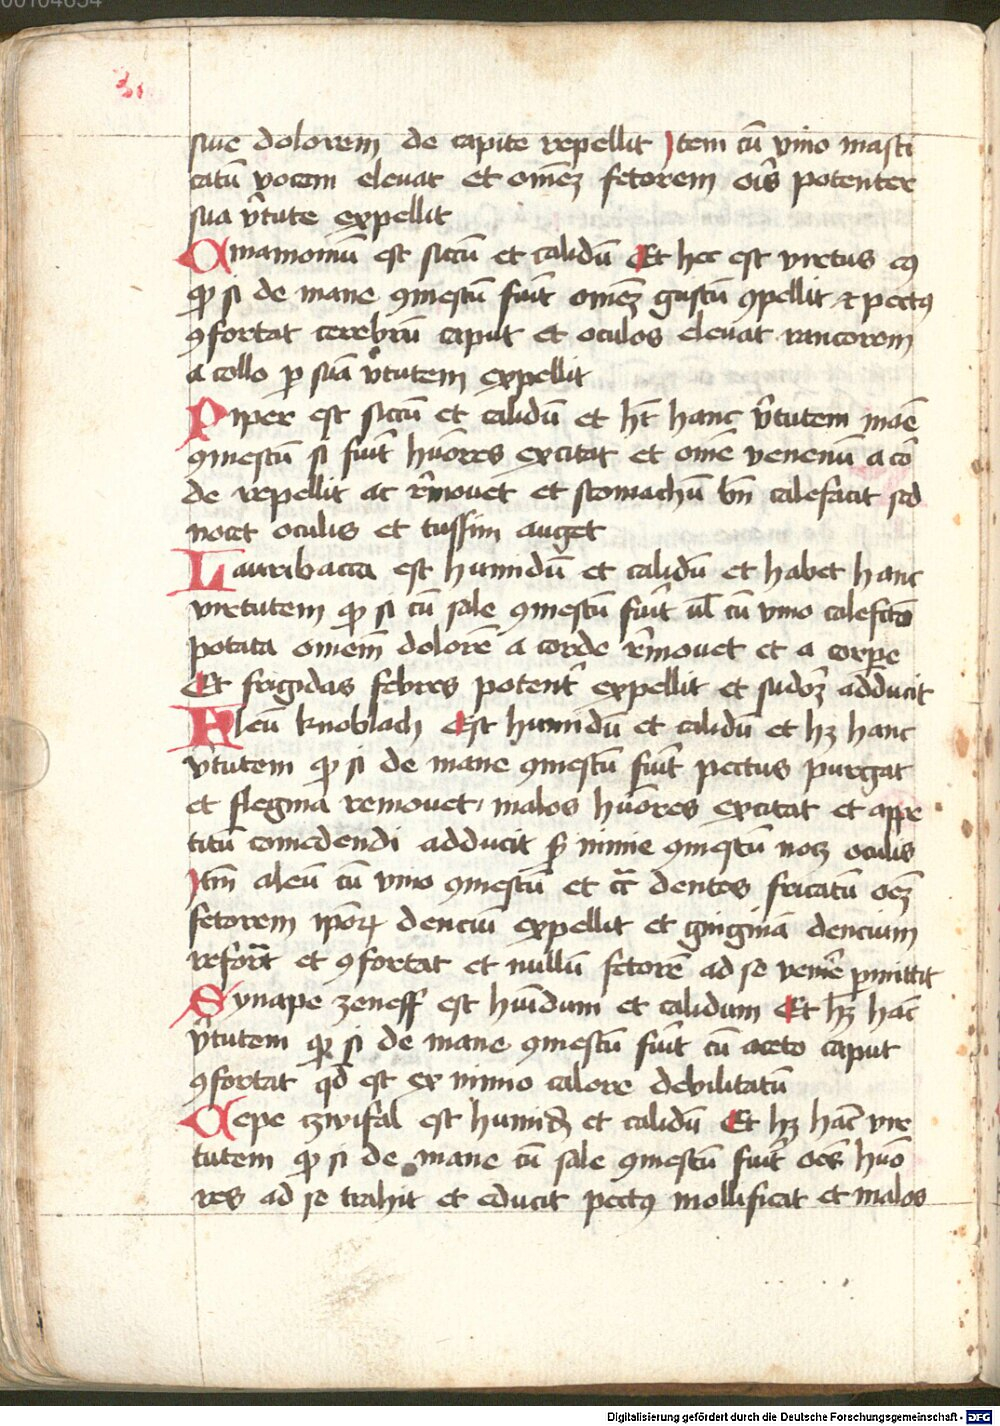 00104654
siue dolorem de capite repellit Jtem cū vino masti
catū vocem eleuat et omēz fetorem oris potenter
sua v̄tute expellit
Cinamomū est siccū et calidū Et hec est virtus eꝰ
ꝙ si de mane ꝯmestū fuit omēz gustū ꝯpellit et pectꝰ
ꝯfortat cerebrū caput et oculos eleuat rancorem
a collo p suā v̄tutem expellit
Piper est siccū et calidū et hꝫ hanc v̄tutem mane
ꝯmestū si fuit hūores excitat et omē venenū a cor
de repellit ac remouet et stomachū bn̄ calefacit sed
nocet oculis et tussim auget
Lauribacca est humidū et calidū et habet hanc
virtutem ꝙ si cū sale ꝯmestū fuit vl cū vino calefcō
potata omem̄ dolorē a corde remouet et a corpe
Et frigidas febres potent expellit et sudoꝝ adducit
Aleū knoblach Est humidū et calidū et hꝫ hanc
v̄tutem ꝙ si de mane ꝯmestū fuit pectus purgat
et flegma remouet malos hūores excitat et appe
titū comedendi adducit sꝫ nimie ꝯmestū nocꝫ oculis
Jtm̄ aleū cū vino ꝯmestū et cᵃ dentes fricatū oēz
fetorem ipoꝝ denciū expellit et gingiuā dencium
reforᵃt et ꝯfortat et nullū fetorē ad se venire pmittit
Synape zeneff est hūidum et calidum Et hꝫ hāc
v̄tutem ꝙ si de mane ꝯmestū fuit cū aceto caput
ꝯfortat qd̄ est ex nimio calore debilitatū
Cepe zwifal est humidū et calidū Et hꝫ hāc vir
tutem ꝙ si de mane cū sale ꝯmestū fuit oēs hūo
res ad se trahit et educit pectꝰ mollificat et malos
Digitalisierung gefördert durch die Deutsche Forschungsgemeinschaft - DFG